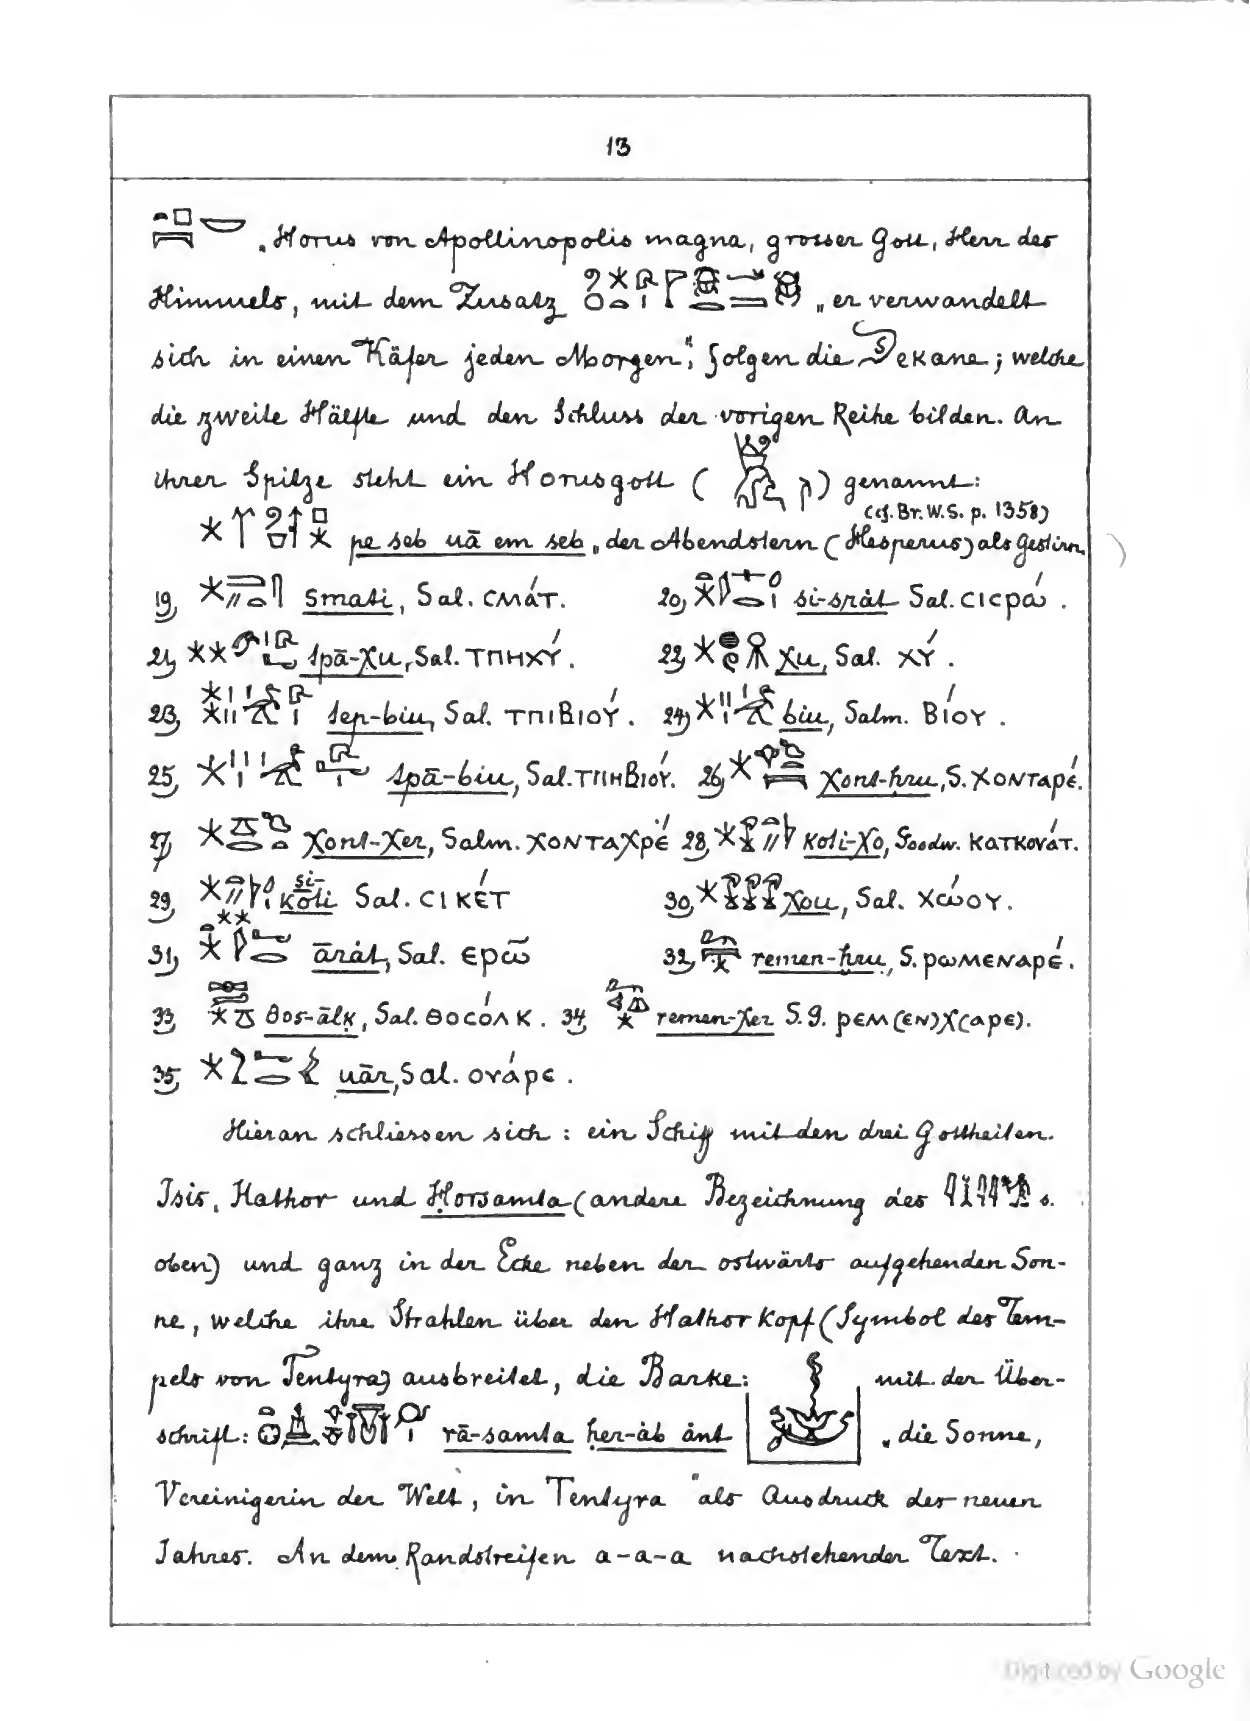 13
„Horus von Apollinopolis magna, grosser Gott, Herr des
Himmels, mit dem Zusatz „er verwandelt
sich in einen Käfer jeden Morgen", folgen die Dekane; welche
die zweite Hälfte und den Schluss der vorigen Reihe bilden. An
ihrer Spitze steht ein Horusgott ( ) genannt:
(cf. Br. W.S. p. 1358)
pe seb uā em seb „der Abendstern (Hesperus) als Gestirn
19, smati, Sal. CMÁT. 20, si-srȧt Sal. CICPѠ́.
21, tpā-χu, Sal. ΤΠΗΧΎ. 22, χu, Sal. ΧΎ.
23, tep-biu, Sal. ΤΠΙΒΙΟΎ. 24, biu, Salm. ΒΊΟΥ.
25, tpā-biu, Sal. ΤΠΗΒΙΟΎ. 26, χont-ḥru, S. ΧΟΝΤΑΡΈ.
27, χont-χer, Salm. ΧΟΝΤΑΧΡΈ 28, koti-χo, Goodw. ΚΑΤΚΟΥΆΤ.
29, si-koti Sal. CΙΚΈΤ 30, χou, Sal. ΧѠ́ΟΥ.
31, ārȧt, Sal. ΕΡѠ̃ 32, remen-ḥru, S. ΡѠΜΕΝΑΡΈ.
33, θos-ālḳ, Sal. ΘΟCΌΛΚ. 34, remen-χer S.G. ΡΕΜ(ΕΝ)Χ(ΑΡΕ).
35, uār, Sal. ΟΥΆΡΕ.
Hieran schliessen sich: ein Schiff mit den drei Gottheiten.
Isis, Hathor und Ḥorsamta (andere Bezeichnung des s.
oben) und ganz in der Ecke neben der ostwärts aufgehenden Son-
ne, welche ihre Strahlen über den Hathorkopf (Symbol des Tem-
pels von Tentyra) ausbreitet, die Barke: mit der Über-
schrift: rā-samta ḥer-ȧb ȧnt „die Sonne,
Vereinigerin der Welt, in Tentyra" als Ausdruck des neuen
Jahres. An dem Randstreifen a-a-a nachstehender Text.
Digitized by Google